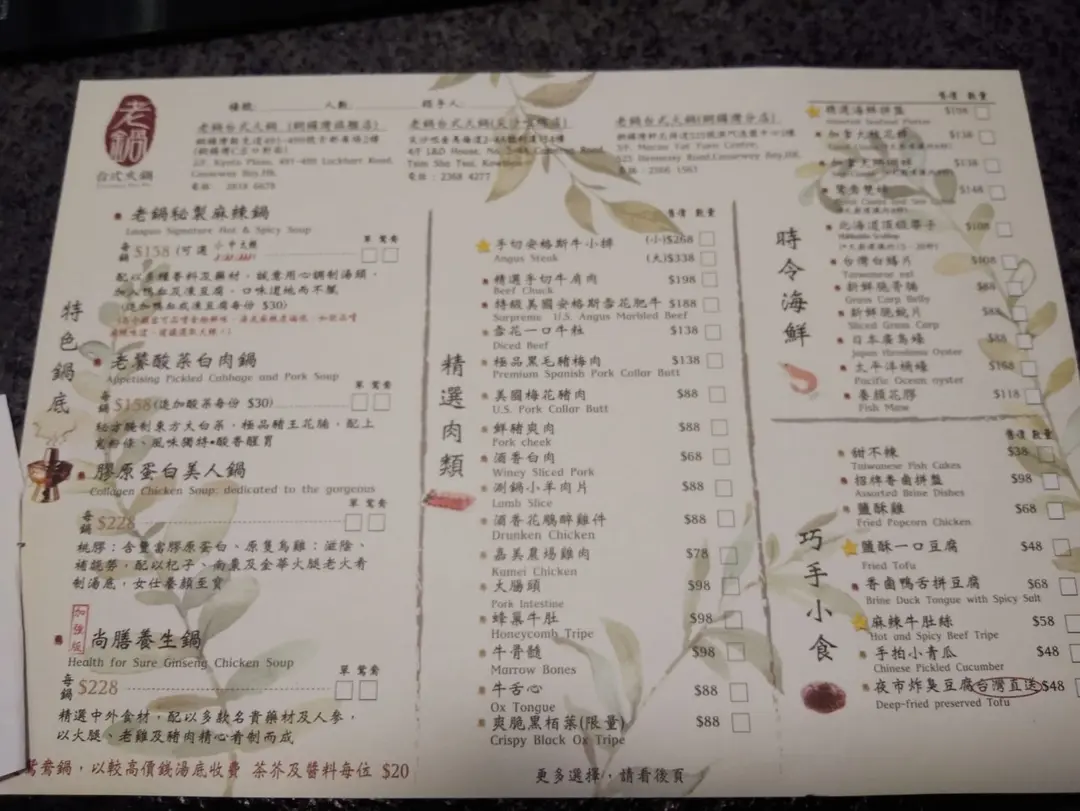 老鍋
台式火鍋
檯號: 人數: 經手人:
老鍋台式火鍋 (銅鑼灣旗艦店)
2F, Kyoto Plaza, 491-499 Lockhart Road,
Causeway Bay, HK.
老鍋台式火鍋(尖沙咀店)
4/F L&D House,
Tsim Sha Tsui, Kowloon
電話 : 2368 4277
老鍋台式火鍋 (銅鑼灣分店)
5F, Macau Yat Yuen Centre,
525 Hennessy Road, Causeway Bay, HK.
特色鍋底
老鍋秘製麻辣鍋
Laoguo Signature Hot & Spicy Soup
單 鴛鴦
每鍋 $158 (可選 小 中 大辣
配以多種香料及藥材,誠意用心調制湯鍋,
加入鴨血及凍豆腐,口味道地而不膩
(追加鴨血或凍豆腐每份 $30)
老饕酸菜白肉鍋
Appetising Pickled Cabbage and Pork Soup
單 鴛鴦
每鍋 $158 (追加酸菜每份 $30)
秘方醃制東方大白菜,極品豬王花腩,配上
寬粉條、風味獨特•酸香醒胃
膠原蛋白美人鍋
Collagen Chicken Soup: dedicated to the gorgeous
單 鴛鴦
每鍋 $228
桃膠:含豐富膠原蛋白、原隻烏雞:滋陰、
補臟勞,配以杞子、南棗及金華火腿老火肴
制湯底,女仕養顏至寶
加強版
尚膳養生鍋
Health for Sure Ginseng Chicken Soup
單 鴛鴦
每鍋 $228
精選中外食材,配以多款名貴藥材及人參,
以火腿、老雞及豬肉精心肴制而成
鴛鴦鍋,以較高價錢湯底收費 茶芥及醬料每位 $20
精選肉類
售價 數量
手切安格斯牛小排 (小)$268
Angus Steak (大)$338
精選手切牛肩肉 $198
Beef Chuck
特級美國安格斯雪花肥牛 $188
Surpreme U.S. Angus Marbled Beef
雪花一口牛粒 $138
Diced Beef
極品黑毛豬梅肉 $138
Premium Spanish Pork Collar Butt
美國梅花豬肉 $88
U.S. Pork Collar Butt
鮮豬爽肉 $88
Pork cheek
酒香白肉 $68
Winey Sliced Pork
涮鍋小羊肉片 $88
Lamb Slice
酒香花鵰醉雞件 $88
Drunken Chicken
嘉美農場雞肉 $78
Kamei Chicken
大腸頭 $98
Pork Intestine
蜂巢牛肚 $98
Honeycomb Tripe
牛骨髓 $98
Marrow Bones
牛舌心 $88
Ox Tongue
爽脆黑栢葉(限量) $88
Crispy Black Ox Tripe
更多選擇,請看後頁
時令海鮮
售價 數量
精選海鮮拼盤 $198
Assorted Seafood Platter
加拿大桂花蚌 $138
加拿大 $138
鴛鴦雙蚌 $148
北海道頂級帶子 $108
Hokkaido Scallop
台灣白鱔片
Taiwanese eel
新鮮脆脊腩
Grass Carp Belly
新鮮脆鯇片 $88
Sliced Grass Carp
日本廣島蠔 $88
Japan Hiroshima Oyster
太平洋桶蠔
Pacific Ocean oyster
養顏花膠 $118
Fish Maw
巧手小食
售價 數量
甜不辣 $38
Taiwanese Fish Cakes
招牌香鹵拼盤 $98
Assorted Brine Dishes
鹽酥雞 $68
Fried Popcorn Chicken
鹽酥一口豆腐 $48
Fried Tofu
香鹵鴨舌拼豆腐 $68
Brine Duck Tongue with Spicy Salt
麻辣牛肚絲 $58
Hot and Spicy Beef Tripe
手拍小青瓜 $48
Chinese Pickled Cucumber
夜市炸臭豆腐 台灣直送 $48
Deep-fried preserved Tofu